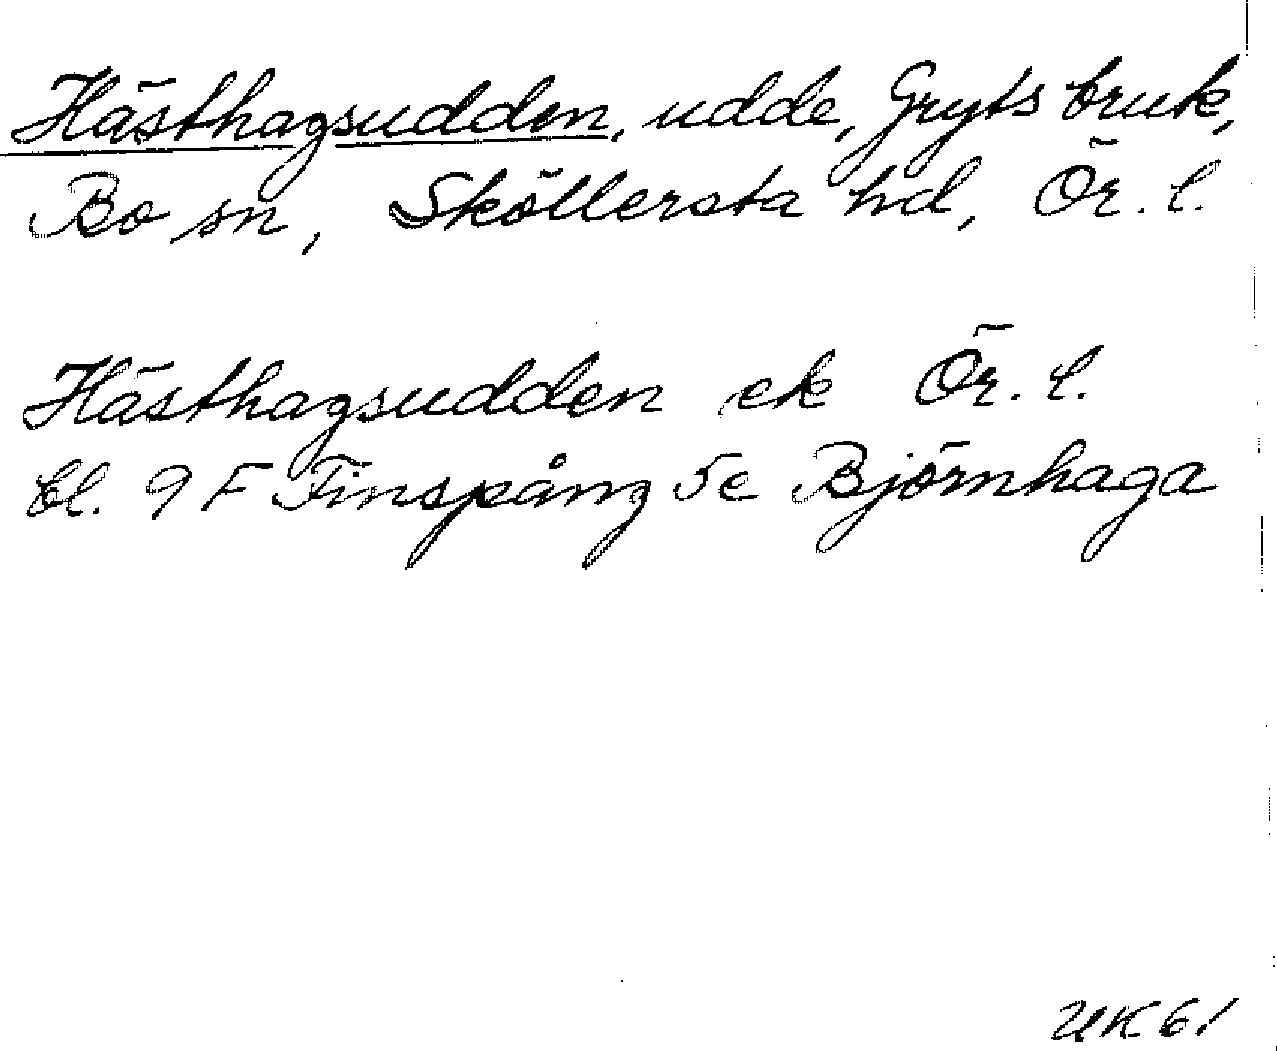 Hästhagsudden, udde, Gryts bruk,
Bo sn, Sköllersta hd, Ör. l.
Hästhagsudden ek Ör. l.
bl. 9 F Finspång 5c Björnhaga
UK 61